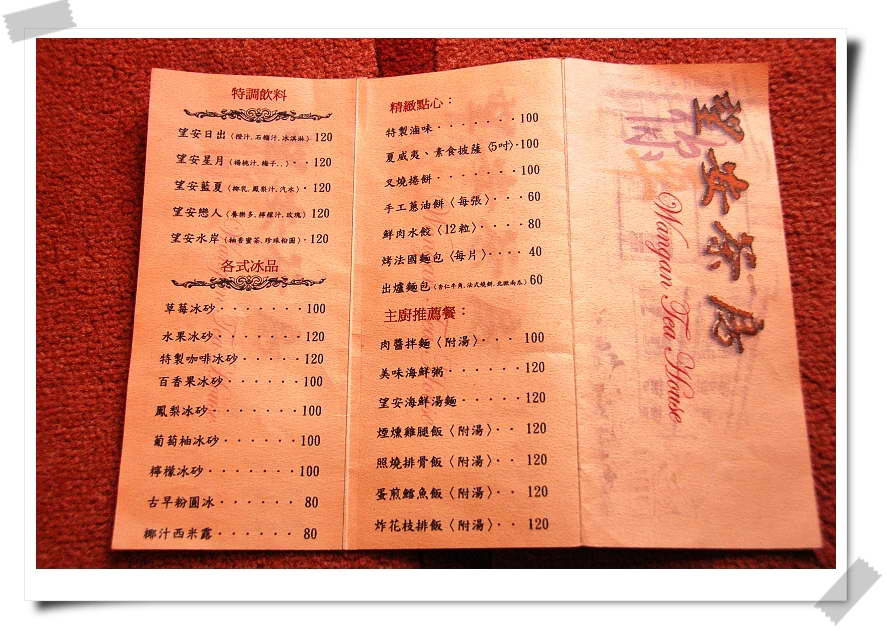 特調飲料
望安日出(橙汁,石榴汁,冰淇淋) 120
望安星月(楊桃汁,梅子..)‧‧120
望安藍夏(椰乳,鳳梨汁,汽水)‧120
望安戀人(養樂多,檸檬汁,玫瑰) 120
望安水岸(柚香蜜茶,珍珠粉圓)‧120
各式冰品
草莓冰砂‧‧‧‧‧‧‧100
水果冰砂‧‧‧‧‧‧‧120
特製咖啡冰砂‧‧‧‧‧120
百香果冰砂‧‧‧‧‧‧100
鳳梨冰砂‧‧‧‧‧‧‧100
葡萄柚冰砂‧‧‧‧‧‧100
檸檬冰砂‧‧‧‧‧‧‧100
古早粉圓冰‧‧‧‧‧‧80
椰汁西米露‧‧‧‧‧‧80
精緻點心:
特製滷味‧‧‧‧‧‧‧100
夏威夷、素食披薩〈5吋〉‧100
叉燒捲餅‧‧‧‧‧‧‧100
手工蔥油餅〈每張〉‧‧‧60
鮮肉水餃〈12粒〉‧‧‧‧80
烤法國麵包〈每片〉‧‧‧40
出爐麵包(杏仁牛角,法式燒餅,北歐南瓜) 60
主廚推薦餐:
肉醬拌麵〈附湯〉‧‧‧100
美味海鮮粥‧‧‧‧‧‧120
望安海鮮湯麵‧‧‧‧‧120
煙燻雞腿飯〈附湯〉‧‧120
照燒排骨飯〈附湯〉‧‧120
蛋煎鱈魚飯〈附湯〉‧‧120
炸花枝排飯〈附湯〉‧‧120
望安茶店
Wangan Tea House